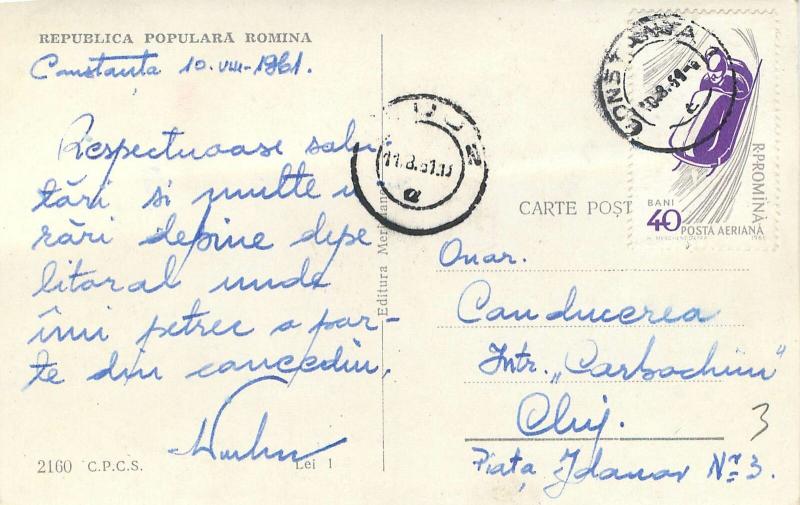 REPUBLICA POPULARĂ ROMINĂ
Constanța 10-VIII-1961.
Respectuoase salu-
tări și multe u-
rări de bine depe
litoral unde
îmi petrec o par-
te din concediu.
2160 C.P.C.S.
Lei 1
Editura Meridiane
CLUJ 2
11.8.61.
CONSTANȚA
10.8.61
CARTE POȘT
BANI
40
POSTA AERIANĂ
1961
R.P.ROMÎNĂ
Onor.
Conducerea
Intr. „Carbochim"
Cluj.
Piața Jdanov Nr. 3.
3